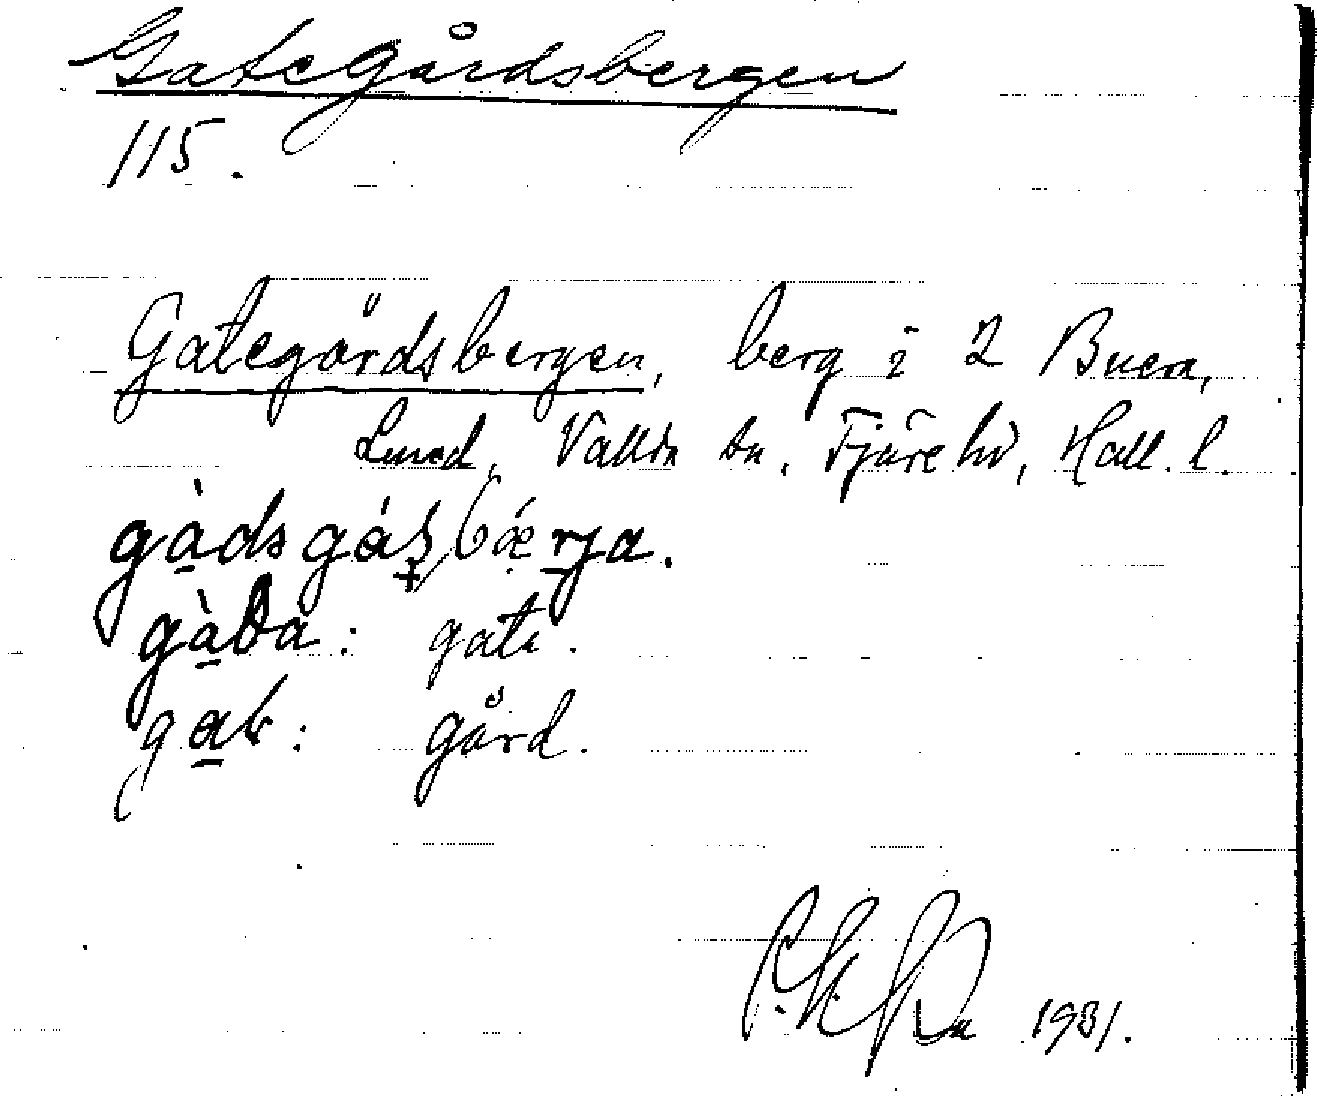 Gategårdsbergen
115.
Gategårdsbergen, berg i 2 Buera,
Lunden, Vallda sn, Fjäre hd, Hall. l.
gàdsgáṣbǽrja.
gàda: gata.
gaɩ: gård.
1931.